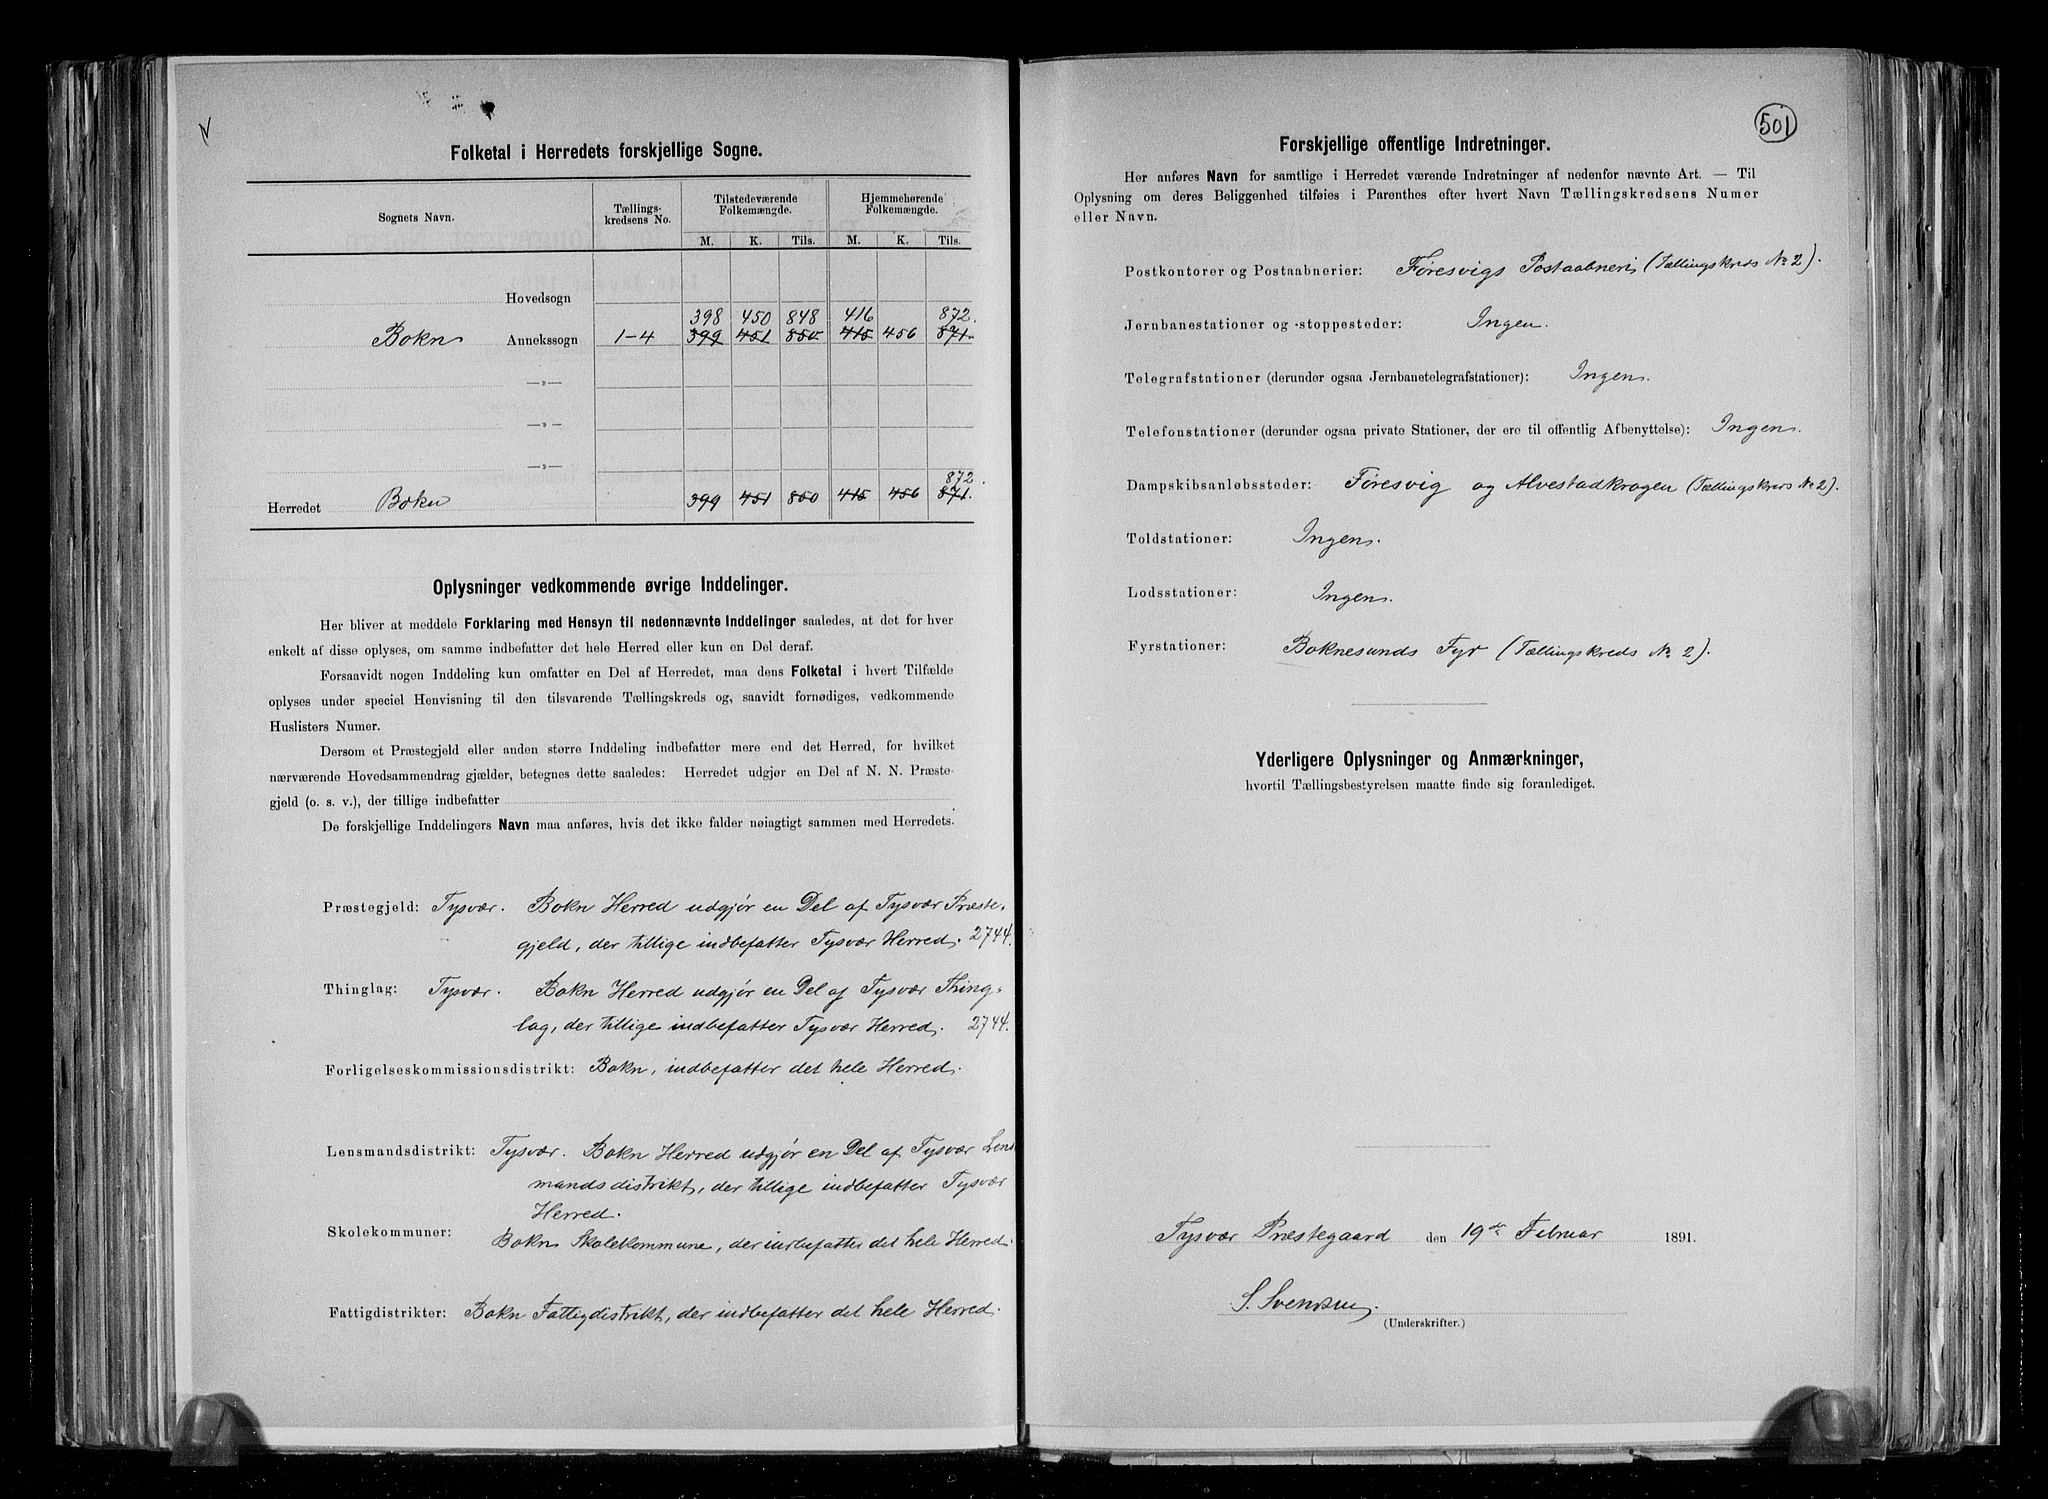 Folketal i Herredets forskjellige Sogne.
Sognets Navn. Tællings-kredsens No. Tilstedeværende Folkemængde. Hjemmehørende Folkemængde.
M. K. Tils. M. K. Tils.
Hovedsogn
398 450 848 416 872.
Bokn Annekssogn 1-4 399 451 850 415 456 871.
—„—
—„—
—„—
872.
Herredet Bokn 399 451 850 415 456 871.
Oplysninger vedkommende øvrige Inddelinger.
Her bliver at meddele Forklaring med Hensyn til nedennævnte Inddelinger saaledes, at det for hver
enkelt af disse oplyses, om samme indbefatter det hele Herred eller kun en Del deraf.
Forsaavidt nogen Inddeling kun omfatter en Del af Herredet, maa dens Folketal i hvert Tilfælde
oplyses under speciel Henvisning til den tilsvarende Tællingskreds og, saavidt fornødiges, vedkommende
Huslisters Numer.
Dersom et Præstegjeld eller anden større Inddeling indbefatter mere end det Herred, for hvilket
nærværende Hovedsammendrag gjælder, betegnes dette saaledes: Herredet udgjør en Del af N. N. Præste-
gjeld (o. s. v.), der tillige indbefatter
De forskjellige Inddelingers Navn maa anføres, hvis det ikke falder nøiagtigt sammen med Herredets.
Præstegjeld: Tysvær. Bokn Herred udgjør en Del af Tysvær Præste-
gjeld, der tillige indbefatter Tysvær Herred. 2744.
Thinglag: Tysvær. Bokn Herred udgjør en Del af Tysvær Thing-
lag, der tillige indbefatter Tysvær Herred. 2744.
Forligelseskommissionsdistrikt: Bokn, indbefatter det hele Herred.
Lensmandsdistrikt: Tysvær. Bokn Herred udgjør en Del af Tysvær Lens
mandsdistrikt, der tillige indbefatter Tysvær
Herred.
Skolekommuner: Bokn Skolekommune, der indbefatter det hele Herred.
Fattigdistrikter: Bokn Fattigdistrikt, der indbefatter det hele Herred.
501
Forskjellige offentlige Indretninger.
Her anføres Navn for samtlige i Herredet værende Indretninger af nedenfor nævnte Art. — Til
Oplysning om deres Beliggenhed tilføies i Parenthes efter hvert Navn Tællingskredsens Numer
eller Navn.
Postkontorer og Postaabnerier: Føresvigs Postaabneri (Tællingskreds No 2).
Jernbanestationer og -stoppesteder: Ingen.
Telegrafstationer (derunder ogsaa Jernbanetelegrafstationer): Ingen.
Telefonstationer (derunder ogsaa private Stationer, der ere til offentlig Afbenyttelse): Ingen.
Dampskibsanløbssteder: Føresvig og Alvestadkrogen (Tællingskreds No 2).
Toldstationer: Ingen.
Lodsstationer: Ingen.
Fyrstationer: Boknesunds Fyr (Tællingskreds No 2).
Yderligere Oplysninger og Anmærkninger,
hvortil Tællingsbestyrelsen maatte finde sig foranlediget.
Tysvær Præstegaard den 19de Februar 1891.
S. Svendsen.
(Underskrifter.)